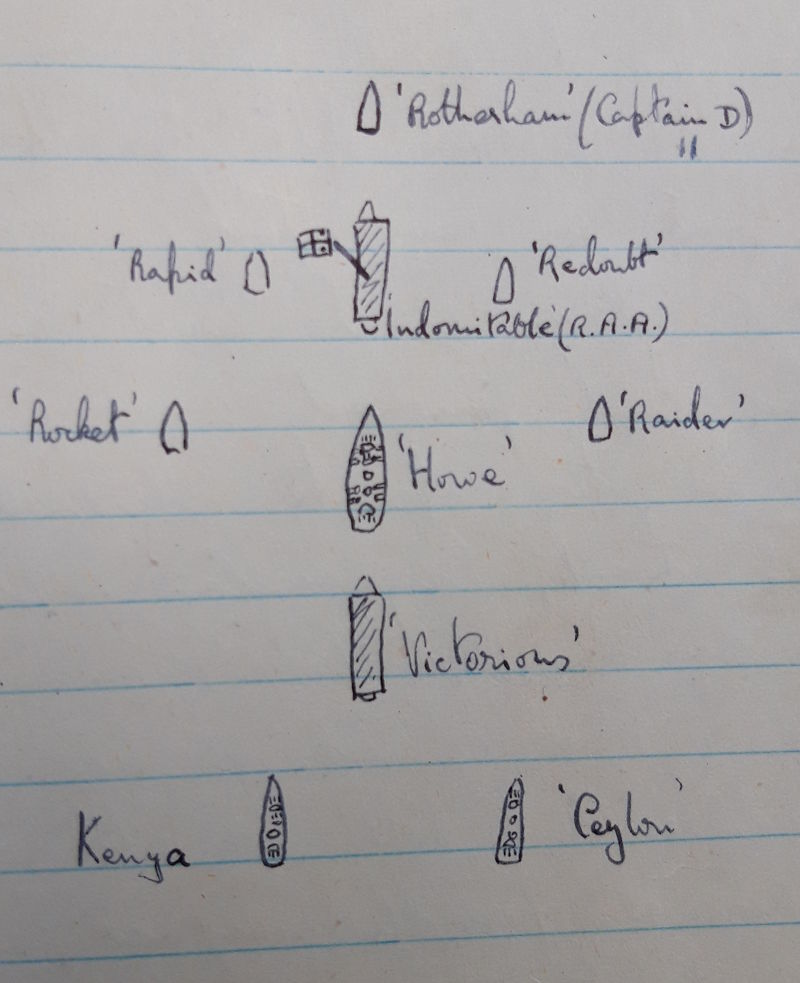 'Rotherham' (Captain D)
"
'Rapid' 'Redoubt'
'Indomitable' (R.A.A.)
'Rocket' 'Raider'
'Howe'
'Victorious'
Kenya 'Ceylon'